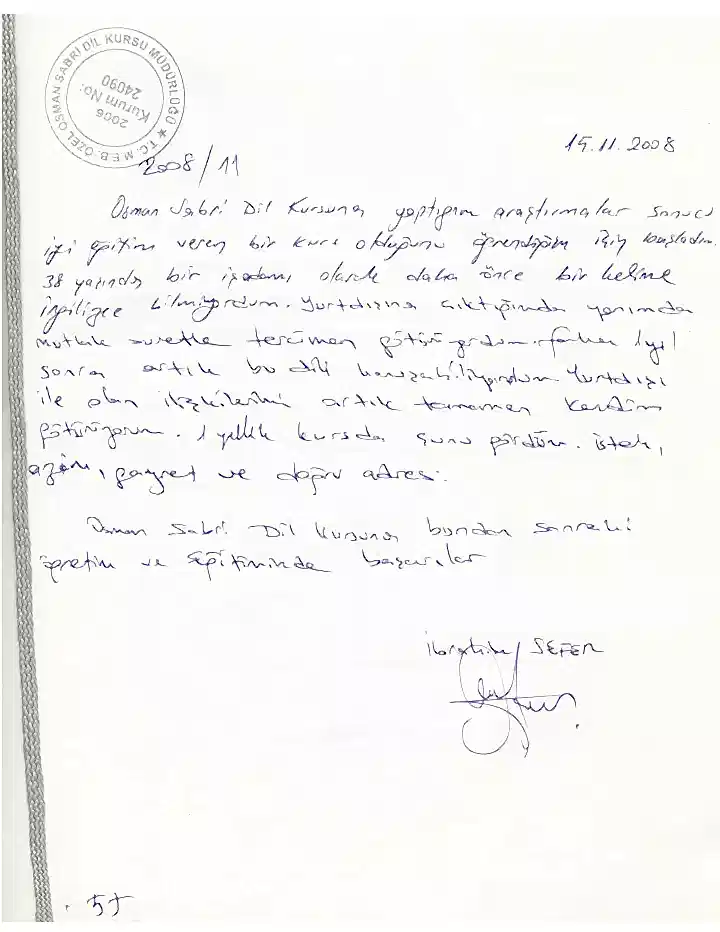 T.C. M.E.B. ÖZEL OSMAN SABRİ DİL KURSU MÜDÜRLÜĞÜ ★
2006
Kurum No:
24090
2008/11
15.11.2008
Osman Sabri Dil Kursuna yaptığım araştırmalar sonucu
iyi eğitim veren bir kurs olduğunu öğrendiğim için başladım.
38 yaşında bir işadamı olarak daha önce bir kelime
ingilizce bilmiyordum. Yurtdışına çıktığımda yanımda
mutlak suretle tercüman götürüyordum. 1 yıl
sonra artık bu dili konuşabiliyordum Yurtdışı
ile olan ilişkilerimi artık tamamen kendim
götürüyorum. 1 yıllık kursda şunu gördüm. istek,
azim, gayret ve doğru adres.
Osman Sabri Dil Kursuna bundan sonraki
öğretim ve eğitiminde başarılar
İbrahim SEFER
57